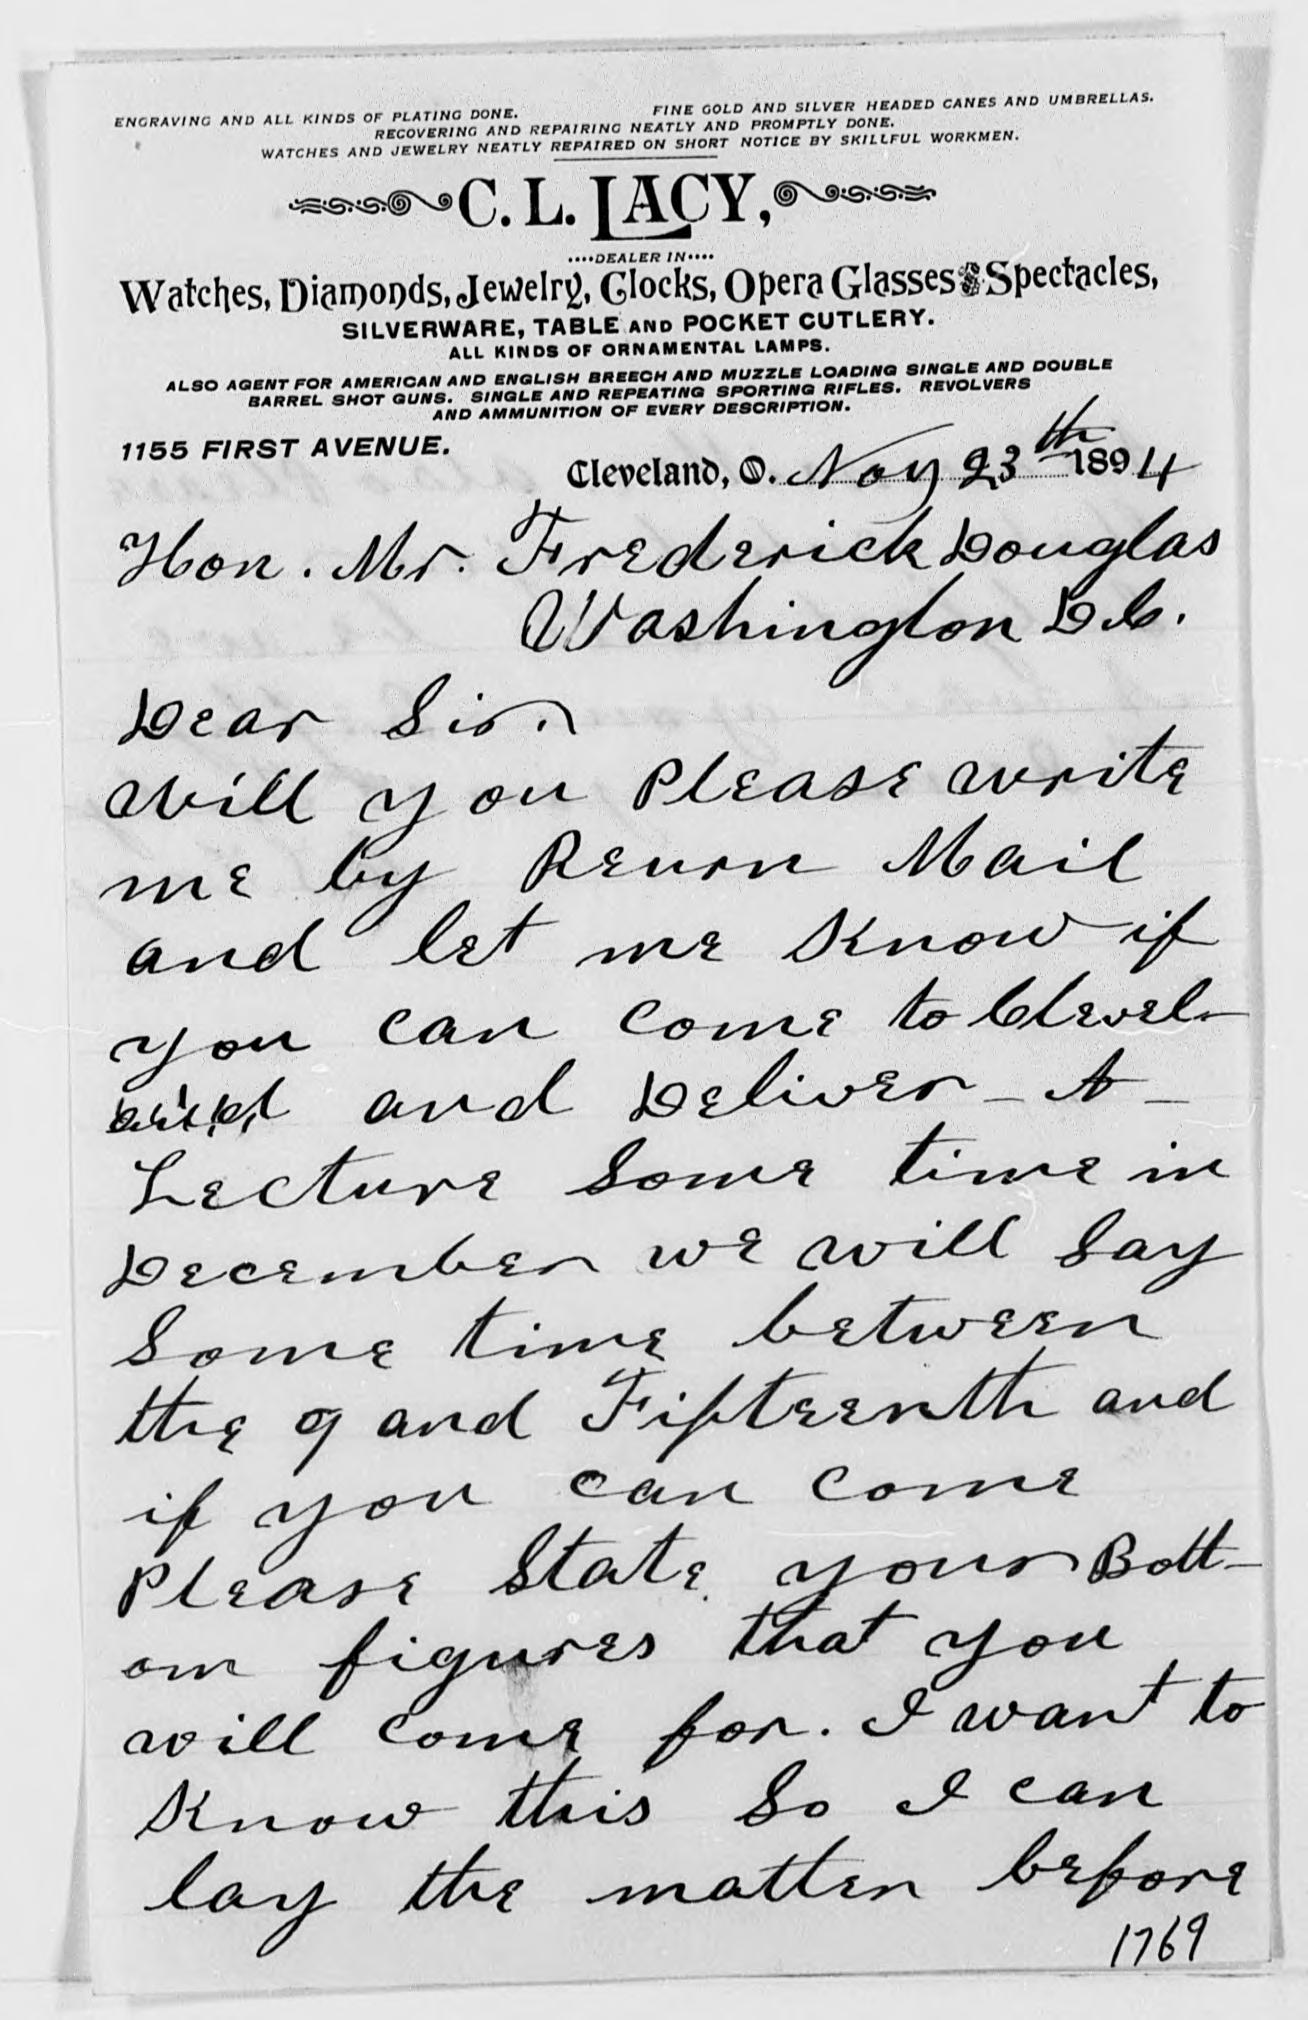 ENGRAVING AND ALL KINDS OF PLATING DONE. FINE GOLD AND SILVER HEADED CANES AND UMBRELLAS.
RECOVERING AND REPAIRING NEATLY AND PROMPTLY DONE.
WATCHES AND JEWELRY NEATLY REPAIRED ON SHORT NOTICE BY SKILLFUL WORKMEN.
C. L. LACY,
....DEALER IN....
Watches, Diamonds, Jewelry, Clocks, Opera Glasses & Spectacles,
SILVERWARE, TABLE AND POCKET CUTLERY.
ALL KINDS OF ORNAMENTAL LAMPS.
ALSO AGENT FOR AMERICAN AND ENGLISH BREECH AND MUZZLE LOADING SINGLE AND DOUBLE
BARREL SHOT GUNS. SINGLE AND REPEATING SPORTING RIFLES. REVOLVERS
AND AMMUNITION OF EVERY DESCRIPTION.
1155 FIRST AVENUE.
Cleveland, O. Nov 23th 1894
Hon. Mr. Frederick Douglas
Washington D.C.
Dear Sir.
Will you Please write
me by Reurn Mail
and let me Know if
you can come to Clevel-
and and Deliver - A -
Lecture Some time in
December we will Say
Some time between
the 9 and Fifteenth and
if you can come
Please State your Bott-
om figures that you
will come for. I want to
Know this So I can
lay the matter before
1769